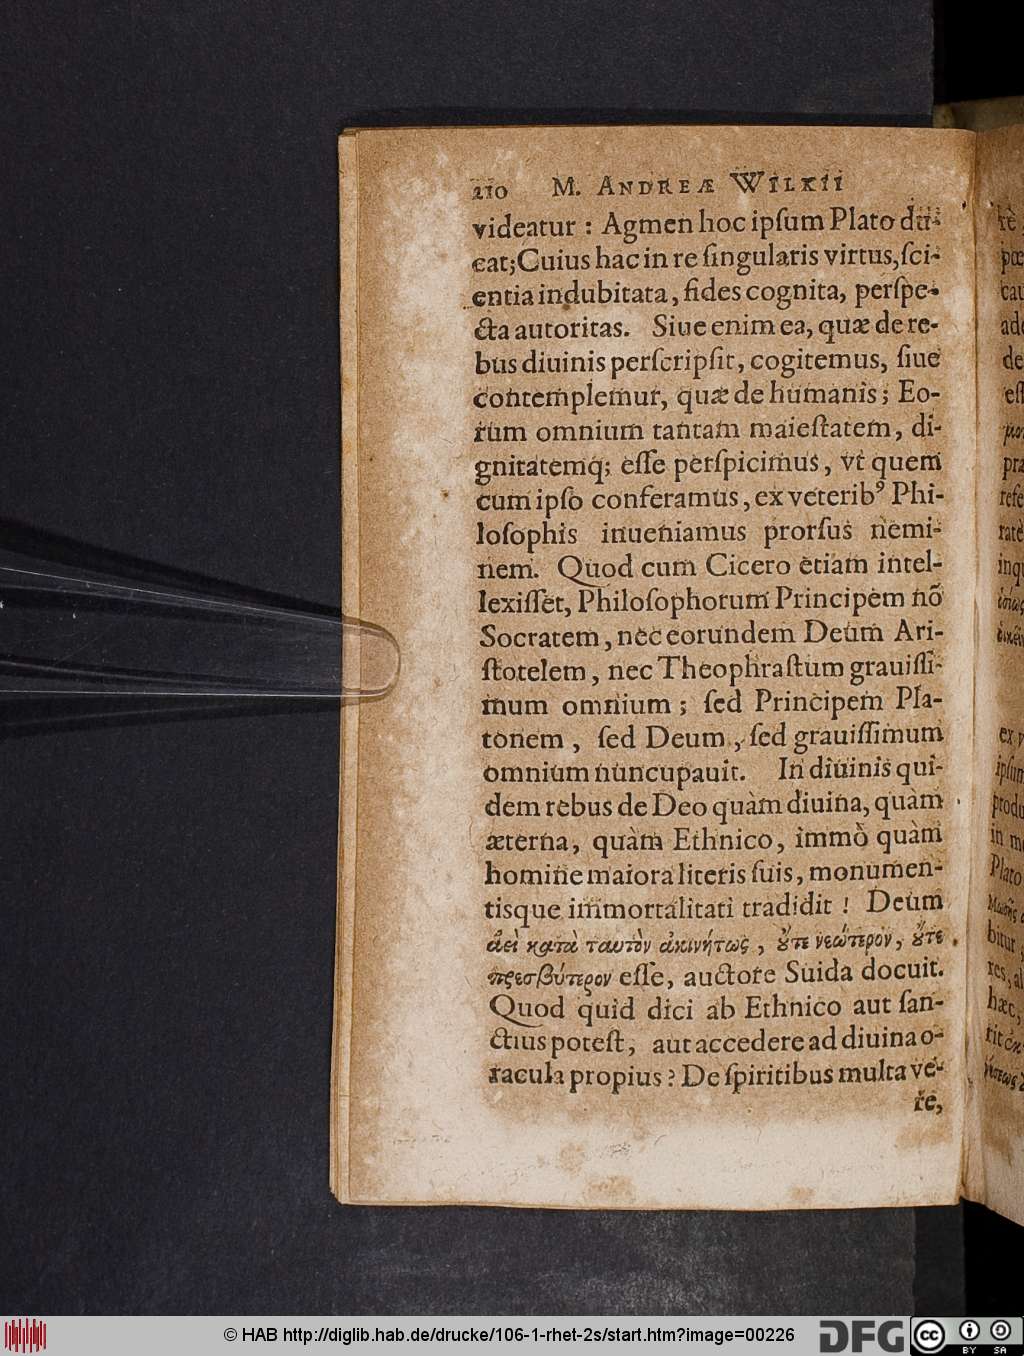 210 M. ANDREÆ WILKII
videatur : Agmen hoc ipſum Plato du-
cat; Cuius hac in re ſingularis virtus, ſci-
entia indubitata, fides cognita, perſpe-
cta autoritas. Siue enim ea, quæ de re-
bus diuinis perſcripſit, cogitemus, ſiue
contemplemur, quæ de humanis; Eo-
rum omnium tantam maieſtatem, di-
gnitatemq; eſſe perſpicimus, vt quem
cum ipſo conferamus, ex veteribꝰ Phi-
loſophis inueniamus prorſus nemi-
nem. Quod cum Cicero etiam intel-
lexiſſet, Philoſophorum Principem nõ
Socratem, nec eorundem Deum Ari-
ſtotelem, nec Theophraſtum grauiſſi-
mum omnium; ſed Principem Pla-
tonem, ſed Deum, ſed grauiſſimum
omnium nuncupauit. In diuinis qui-
dem rebus de Deo quàm diuina, quàm
æterna, quàm Ethnico, immò quàm
homine maiora literis ſuis, monumen-
tisque immortalitati tradidit ! Deum
ἀεὶ κατὰ ταυτὸν ἀκινήτως, ȣ́τε νεώτερον, ȣ́τε
πρεσβύτερον eſſe, auctore Suida docuit.
Quod quid dici ab Ethnico aut ſan-
ctius poteſt, aut accedere ad diuina o-
racula propius? De ſpiritibus multa ve-
re,
© HAB http://diglib.hab.de/drucke/106-1-rhet-2s/start.htm?image=00226
DFG
cc BY SA